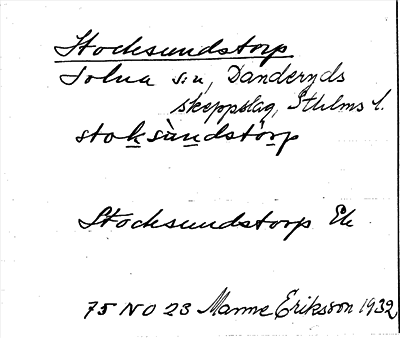 Stocksundstorp
Solna sn, Danderyds
skeppslag, Sthlms l.
stoksàndstórp
Stocksundstorp Ek
75 NO 23 Manne Eriksson 1932